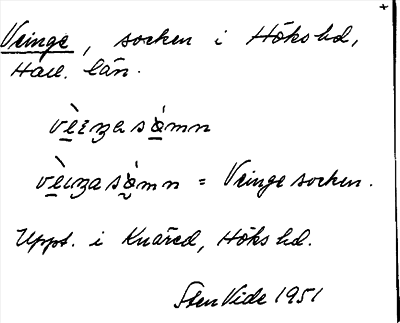 Veinge, socken i Höks hd,
Hall. län.
vèizasòmn
vèizasòmn = Veinge socken.
Uppt. i Knäred, Höks hd.
Sten Vide 1951